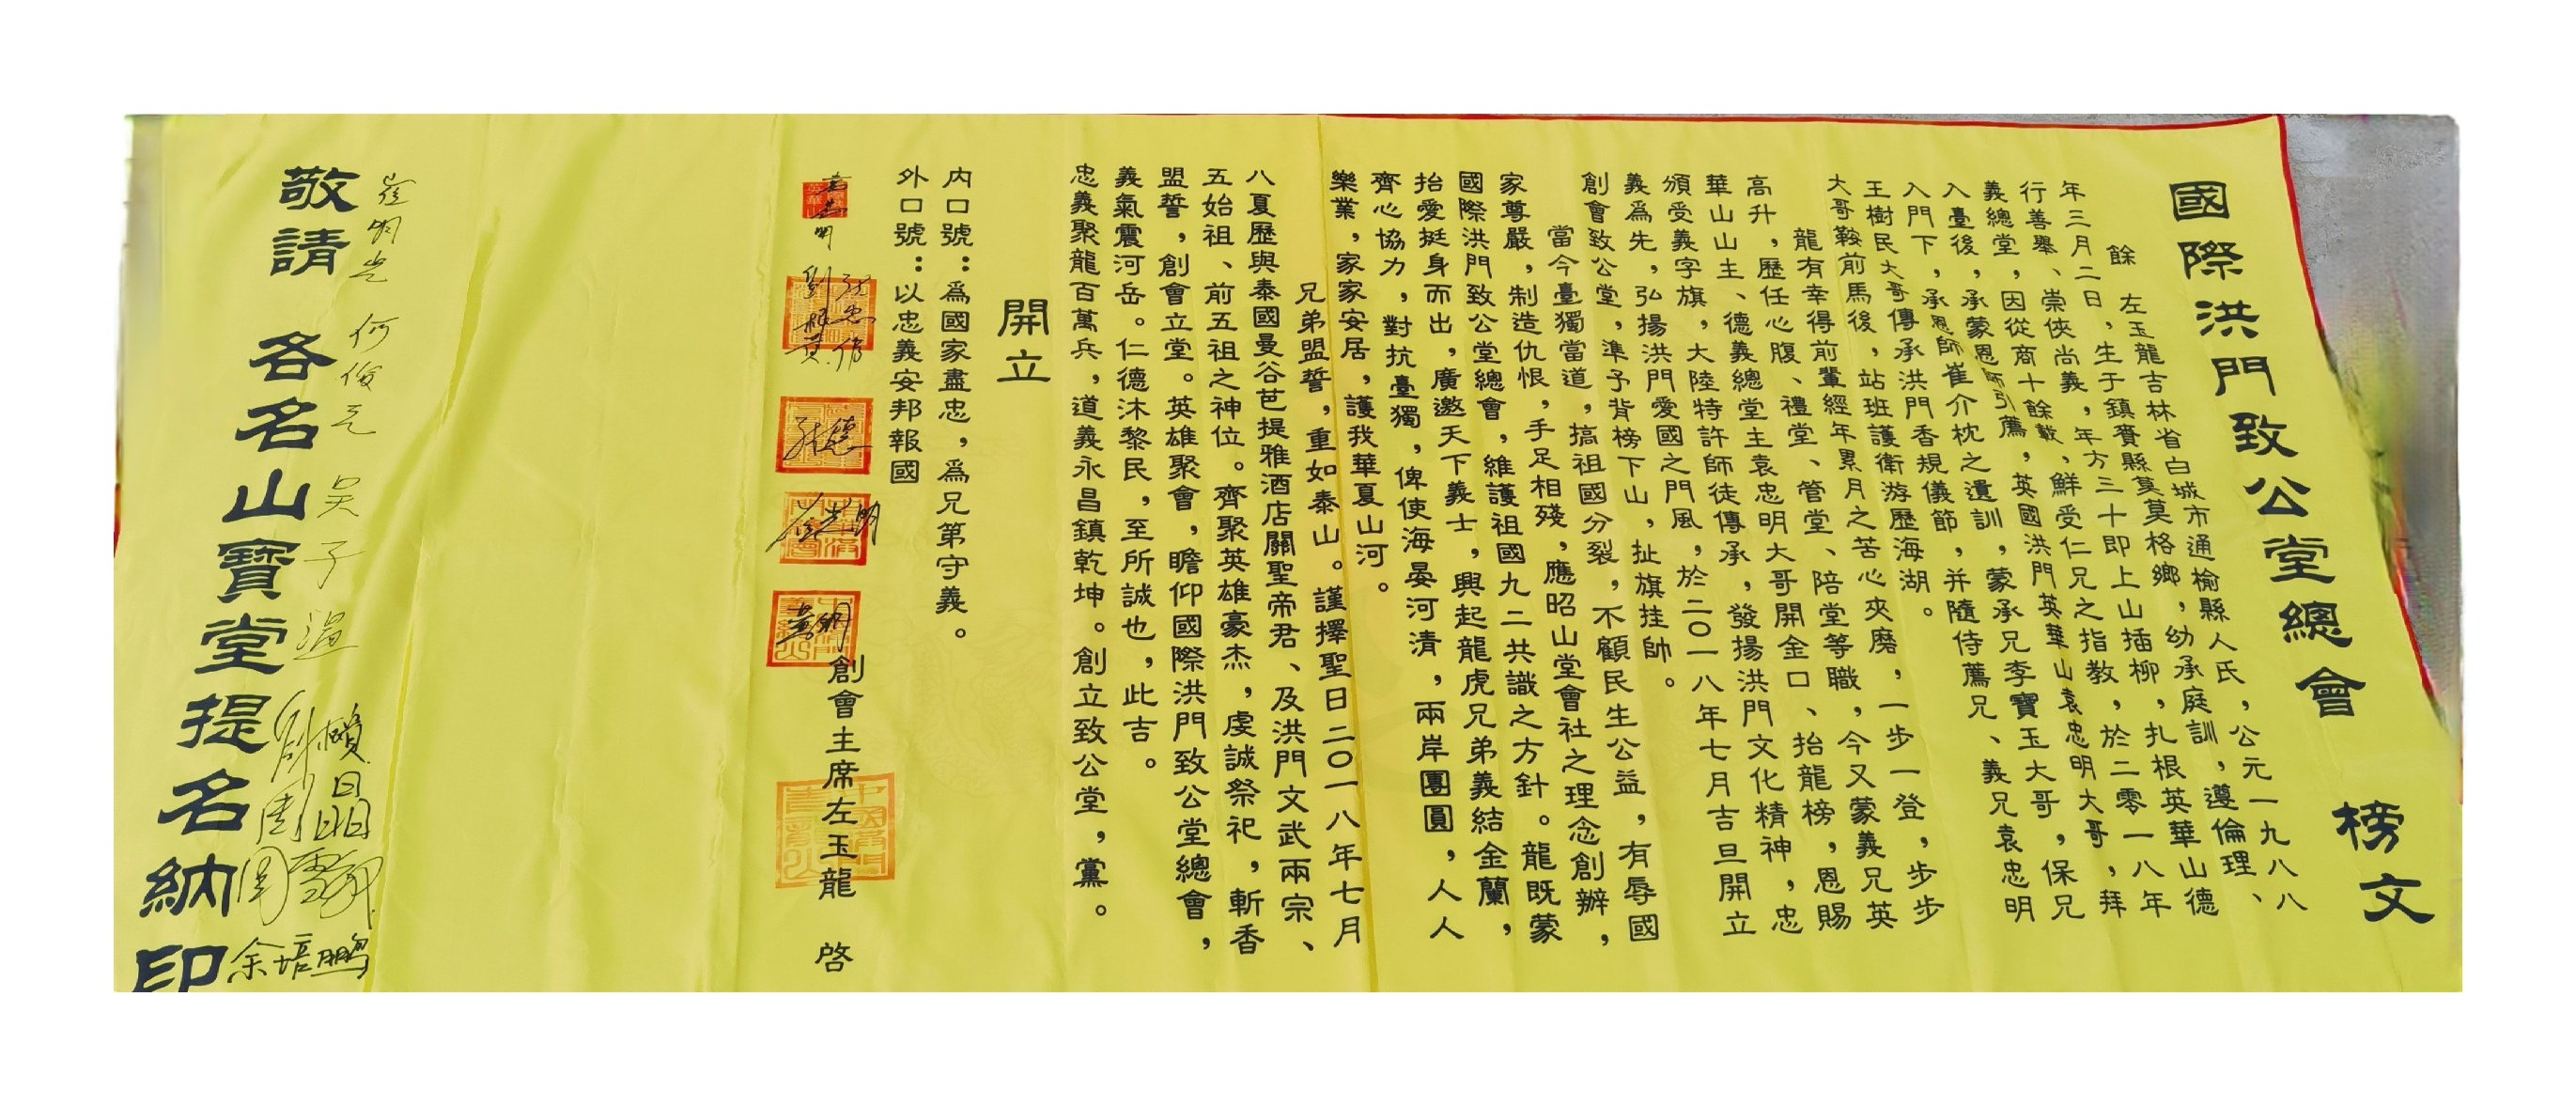 國際洪門致公堂總會 榜文
餘 左玉龍吉林省白城市通榆縣人氏，公元一九八八
年三月二日，生于鎮賚縣莫莫格鄉，幼承庭訓，遵倫理、
行善舉、崇俠尚義，年方三十即上山插柳，扎根英華山德
義總堂，因從商十餘載，鮮受仁兄之指教，於二零一八年
入臺後，承蒙恩師引薦，英國洪門英華山袁忠明大哥，拜
入門下，承恩師崔介枕之遺訓，蒙承兄李寶玉大哥，保兄
王樹民大哥傳承洪門香規儀節，并隨侍薦兄、義兄袁忠明
大哥鞍前馬後，站班護衛游歷海湖。
龍有幸得前輩經年累月之苦心夾磨，一步一登，步步
高升，歷任心腹、禮堂、管堂、陪堂等職，今又蒙義兄英
華山山主、德義總堂主袁忠明大哥開金口、抬龍榜，恩賜
頒受義字旗，大陸特許師徒傳承，發揚洪門文化精神，忠
義爲先，弘揚洪門愛國之門風，於二〇一八年七月吉旦開立
創會致公堂，準予背榜下山，扯旗挂帥。
當今臺獨當道，搞祖國分裂，不顧民生公益，有辱國
家尊嚴，制造仇恨，手足相殘，應昭山堂會社之理念創辦，
國際洪門致公堂總會，維護祖國九二共識之方針。龍既蒙
抬愛挺身而出，廣邀天下義士，興起龍虎兄弟義結金蘭，
齊心協力，對抗臺獨，俾使海晏河清，兩岸團圓，人人
樂業，家家安居，護我華夏山河。
兄弟盟誓，重如泰山。謹擇聖日二〇一八年七月
八夏歷與泰國曼谷芭提雅酒店關聖帝君、及洪門文武兩宗、
五始祖、前五祖之神位。齊聚英雄豪杰，虔誠祭祀，斬香
盟誓，創會立堂。英雄聚會，瞻仰國際洪門致公堂總會，
義氣震河岳。仁德沐黎民，至所誠也，此吉。
忠義聚龍百萬兵，道義永昌鎮乾坤。創立致公堂，黨。
開立
内口號：爲國家盡忠，爲兄第守義。
外口號：以忠義安邦報國
創會主席左玉龍 啓
何俊
吴子
余培鵬
敬請 各名山寶堂提名納印